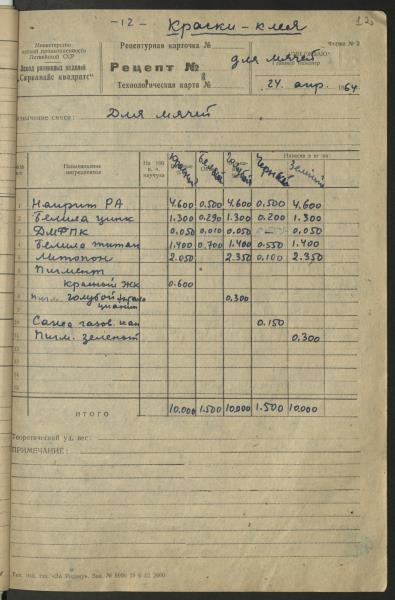 -12- Краски-клея
12
Министерство
лёгкой промышленности
Латвийской ССР
Завод резиновых изделий
„Саркanais квадратс“
Рецептурная карточка №
для мячей
Форма № 2
„УТВЕРЖДАЮ“
Главный инженер
Рецепт №
Технологическая карта №
24. апр. 1964
Для мячей
Наименование ингредиентов
На 100 в. ч. каучука
Красный
Белый
Голубой
Черный
Навеска в кг на:
Зелёный
1 Наирит РА 4.600 0.500 4.600 0.500 4.600
2 Белила цинк 1.300 0.290 1.300 0.200 1.300
3 ДМФПК 0,050 0,010 0,050 0,050
4 Белила титан 1.400 0.700 1.400 0.550 1.400
5 Литопон 2.050 2.350 0,100 2.350
6 Пигмент
7 красный ЖК 0.600
8 Пигм. голубой фтало 0.300
цианин
10 Сажа газов. кан 0.150
11 Пигм. зеленый 0.300
ИТОГО 10.000 1.500 10.000 1.500 10.000
Теоретический уд. вес:
ПРИМЕЧАНИЕ: